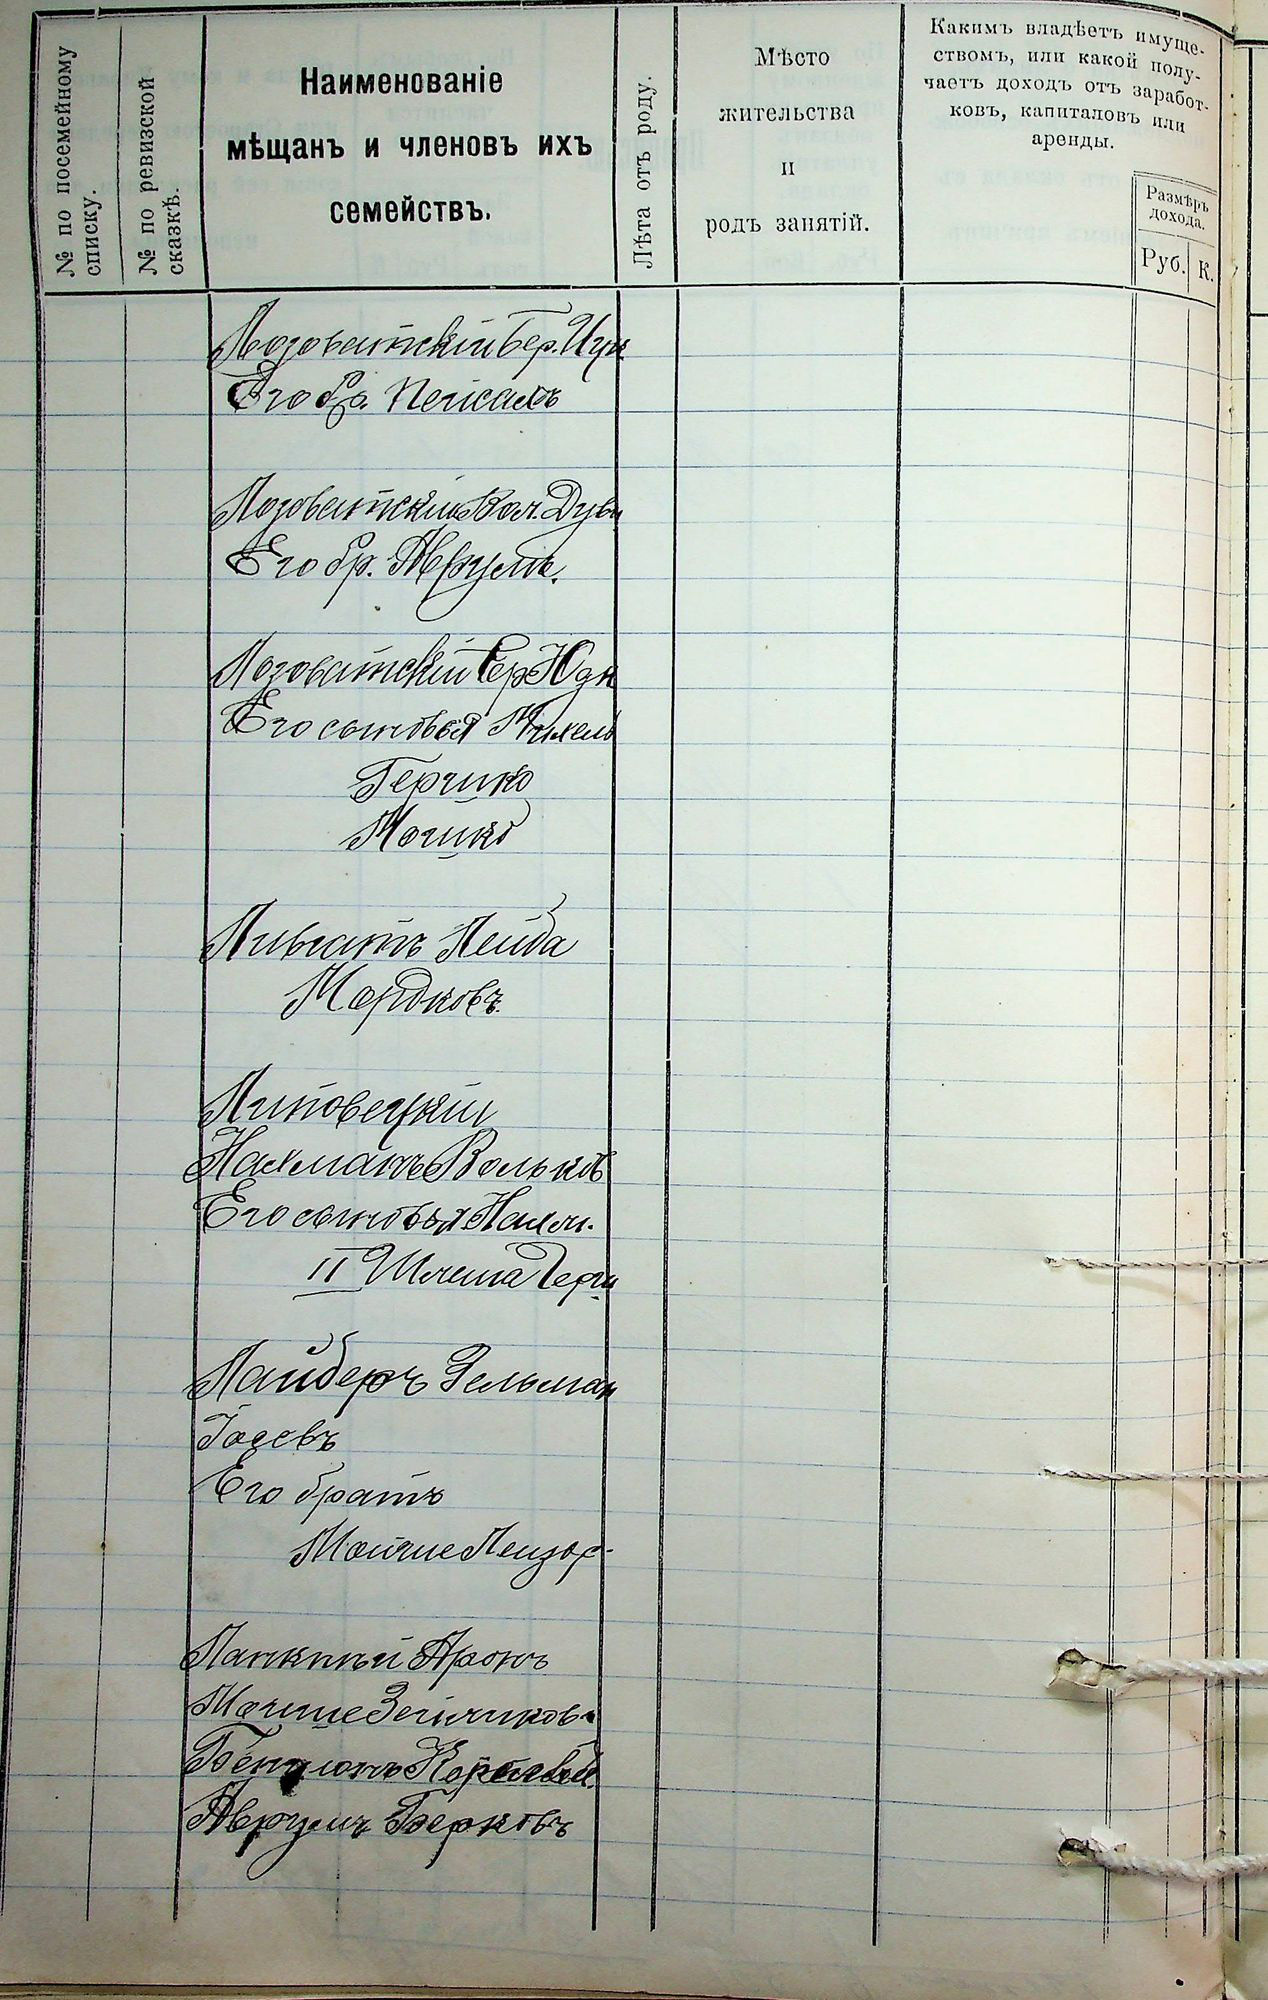 № по посемейному
списку.
№ по ревизской
сказкѣ.
Наименованіе
мѣщанъ и членовъ ихъ
семействъ.
Лѣта отъ роду.
Мѣсто
жительства
и
родъ занятій.
Какимъ владѣетъ имуще-
ствомъ, или какой полу-
чаетъ доходъ отъ заработ-
ковъ, капиталовъ или
аренды.
Размѣръ
дохода.
Руб.
К.
Лозоватскій Бер. Ицк
Его бр. Пейсахъ
Лозоватскій Вол. Дув
Его бр. Аврумъ.
Лозоватскій Юдк
Его сыновья Михель
Гершко
Мошко
Ливгатъ Лейба
Мордковъ.
Липовецкій
Нахманъ Вольков
Его сыновья Нахм.
II Шлема Герш
Лайберъ Зельман
Іосевъ
Его братъ
Мойше Лейзор
Аронъ
Мошше Зейликовъ
Бенціонъ
Аврумъ Берковъ